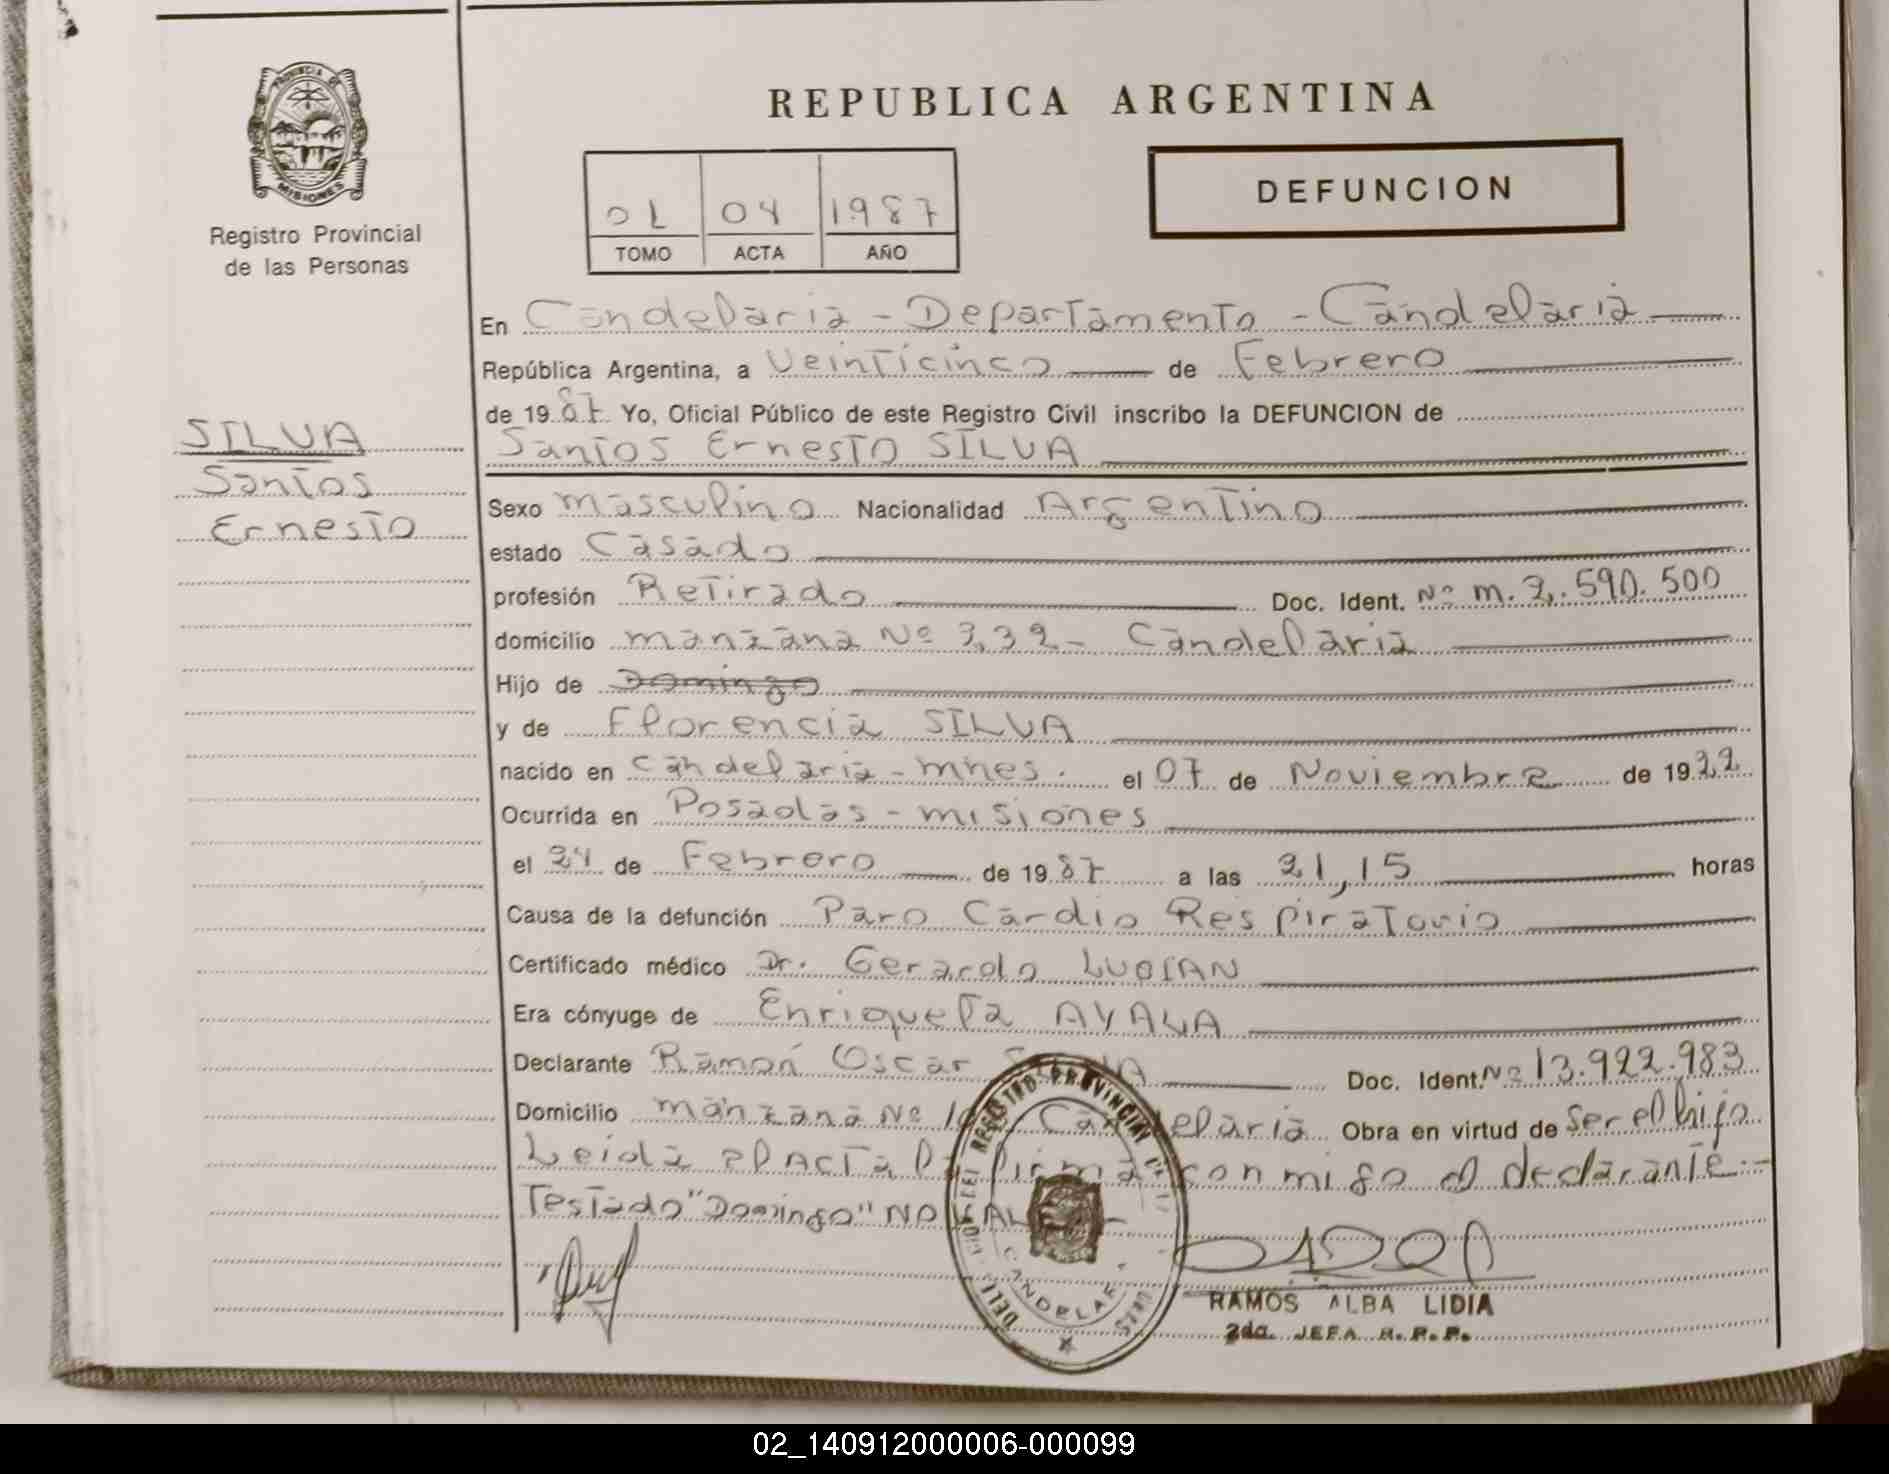 PROVINCIA DE
MISIONES
Registro Provincial
de las Personas
REPUBLICA ARGENTINA
DEFUNCION
01 04 1987
TOMO ACTA AÑO
En Candelaria - Departamento - Candelaria
República Argentina, a Veinticinco de Febrero
de 1987 Yo, Oficial Público de este Registro Civil inscribo la DEFUNCION de
Santos Ernesto SILVA
SILVA
Santos
Ernesto
Sexo masculino Nacionalidad Argentino
estado Casado
profesión Retirado Doc. Ident. Nº m. 7.590.500
domicilio manzana Nº 332 - Candelaria
Hijo de Domingo
y de Florencia SILVA
nacido en Candelaria - mnes. el 07 de Noviembre de 1922
Ocurrida en Posadas - misiones
el 24 de Febrero de 1987 a las 21,15 horas
Causa de la defunción Paro Cardio Respiratorio
Certificado médico Dr. Gerardo
Era cónyuge de Enriqueta AYALA
Declarante Ramón Oscar Doc. Ident. Nº 13.922.983
Domicilio manzana Nº Candelaria Obra en virtud de Ser el hijo
Leida el Acta la firma conmigo el declarante.-
Testado "Domingo" NO VALE
REGISTRO PROVINCIAL
CANDELARIA
RAMOS ALBA LIDIA
2da. JEFA R.P.P.
02_140912000006-000099